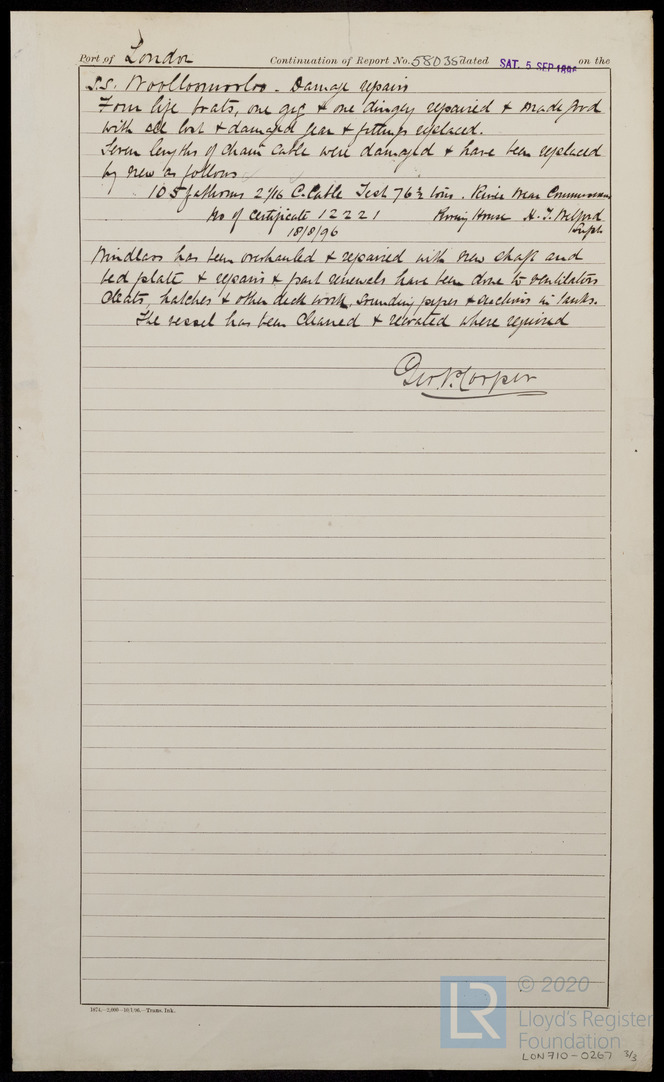 Port of London Continuation of Report No. 58035 dated SAT. 5 SEP 1896 on the
S.S. Woolloomooloo - Damage repairs
Four life boats, one gig & one dingey repaired & made good
with all lost & damaged gear & fittings replaced.
Seven lengths of chain cable were damaged & have been replaced
by new as follows
105 fathoms 2 1/16 C. Cable Test 76 ½ tons. River Wear Commissioners
No of Certificate 12221 Proving House H. J.
18/8/96 Supt
Windlass has been overhauled & repaired with new shaft and
bed plate & repairs & part renewals have been done to ventilators
cleats, hatches & other deck work, sounding pipes & suctions in tanks.
The vessel has been cleaned & recoated where required
Geo. N. Corper
1674.-2,000-10/1/96.-Trans. Ink.
LR © 2020
Lloyd's Register
Foundation
LON710-0267 3/3